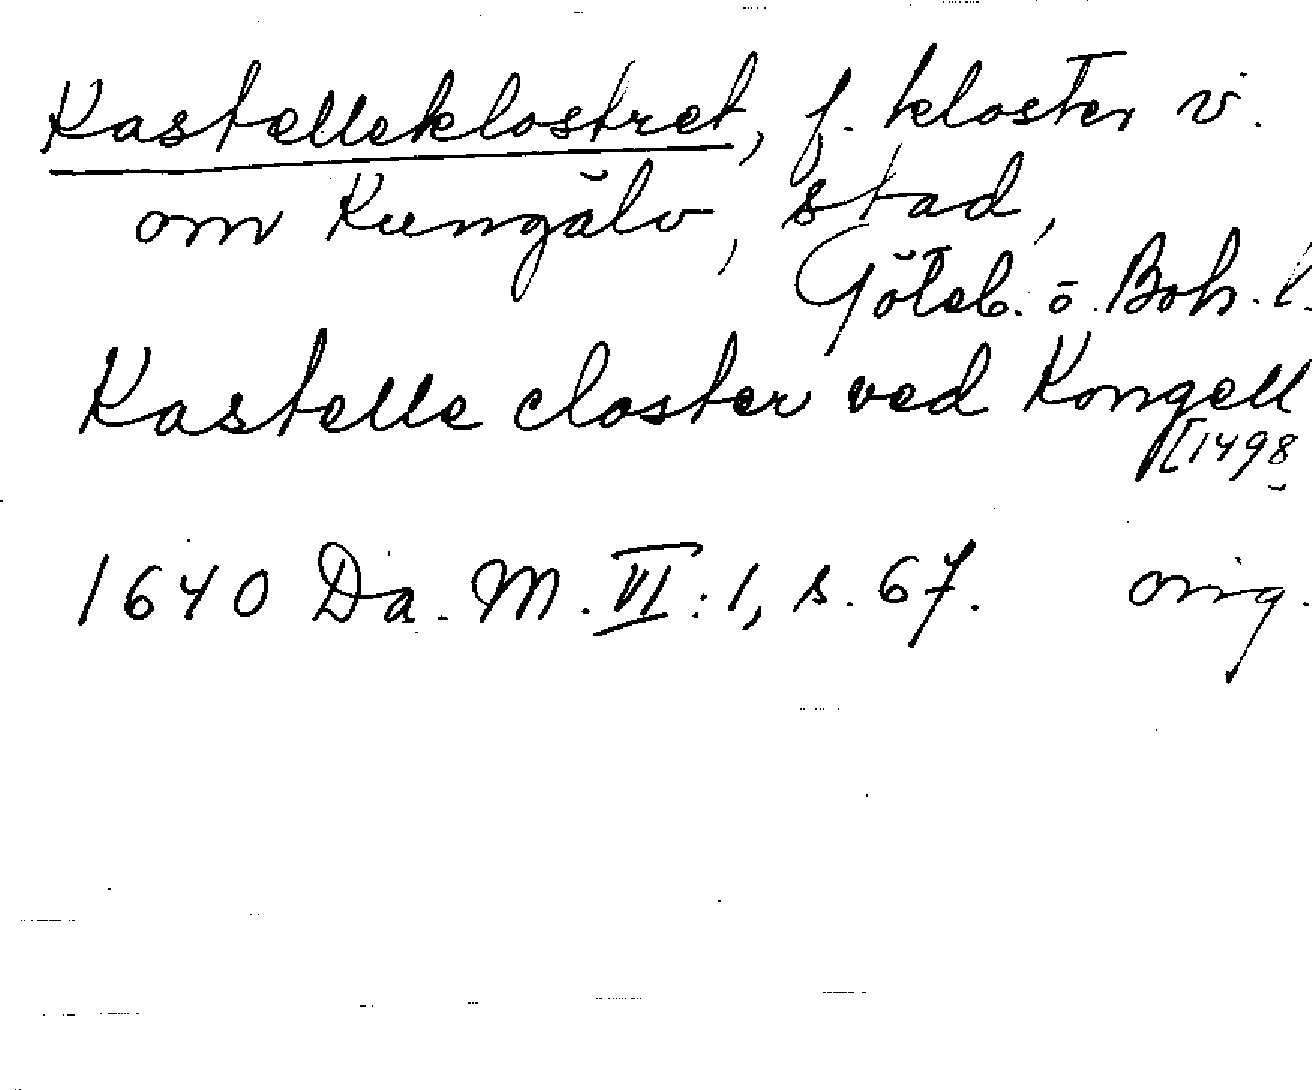 Kastelleklostret, f. kloster v.
om Kungälv, stad,
Göteb. o. Boh. l.
Kastelle closter ved Kongell
[1498
1640 Da. M. VI: 1, s. 67. orig.